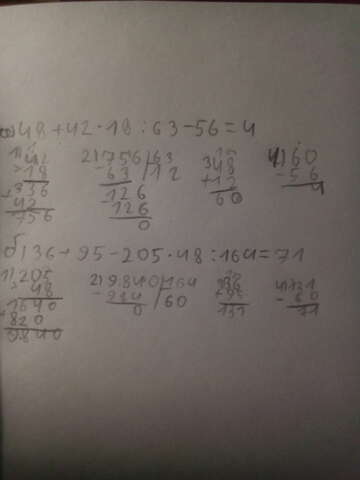 а) 48 + 42 · 18 : 63 - 56 = 4
1) 42 2) 756 | 63 3) 48 4) 60
× 18 - 63 | 12 + 12 - 56
336 126 60 4
+ 42 126
756 0
б) 36 + 95 - 205 · 48 : 164 = 71
1) 205 2) 9840 | 164 36 4) 131
× 48 - 984 | 60 + 95 - 60
1640 0 131 71
+ 820
9840